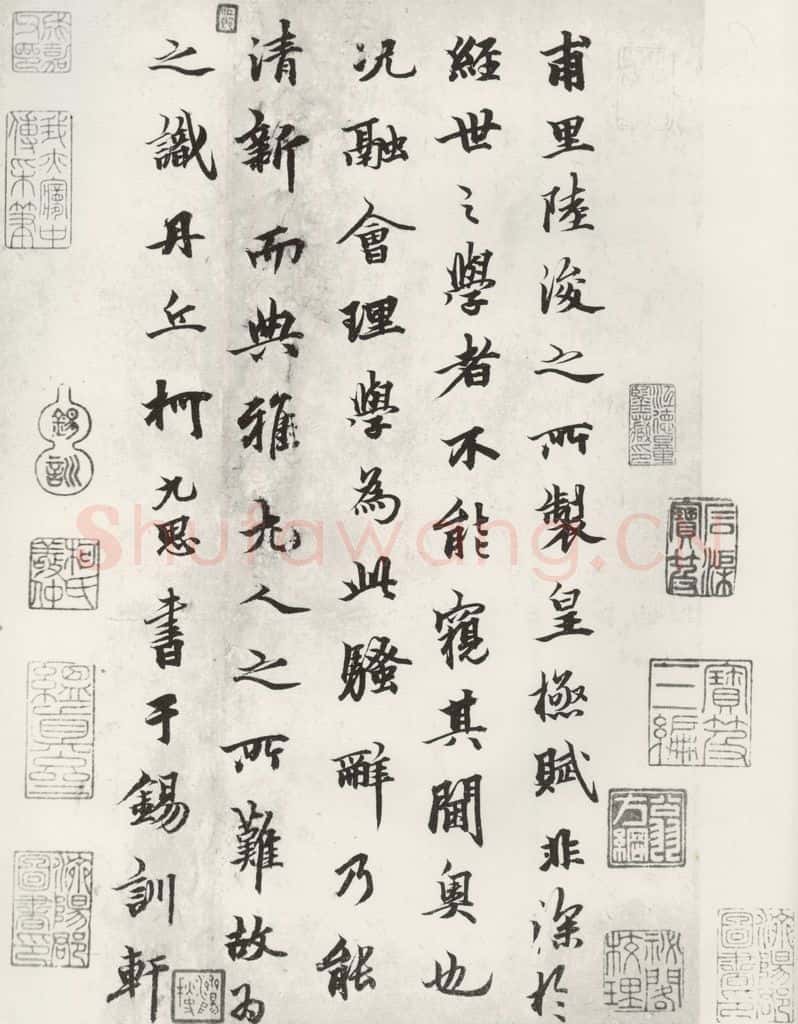 甫里陸浚之所製皇極賦非深於
經世之學者不能窺其閫奥也
况融會理學為此騷辭乃能
清新而典雅尤人之所難故為
之識丹丘柯九思書于錫訓軒
錫訓
柯氏敬仲
寶笈三編
Shufawang.CN